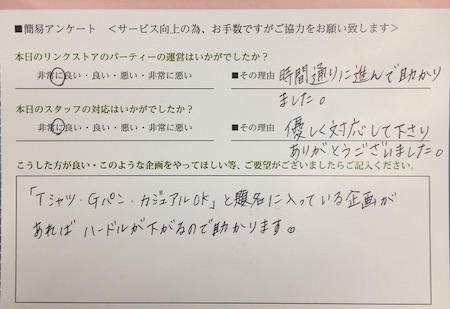 ■簡易アンケート ＜サービス向上の為、お手数ですがご協力をお願い致します＞
本日のリンクストアのパーティーの運営はいかがでしたか？
非常に良い・良い・悪い・非常に悪い ■その理由 時間通りに進んで助かり
ました。
本日のスタッフの対応はいかがでしたか？
非常に良い・良い・悪い・非常に悪い ■その理由 優しく対応して下さり
ありがとうございました。
こうした方が良い・このような企画をやってほしい等、ご要望がございましたらご記入ください。
「Tシャツ・Gパン・カジュアルOK」と題名に入っている企画が
あればハードルが下がるので助かります。